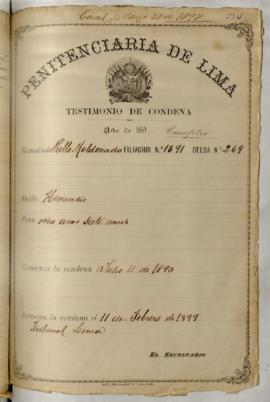 1898
PENITENCIARIA DE LIMA
TESTIMONIO DE CONDENA
Año de 189 Cumplió
Rematado Maldonado FILIACION N.º 1891 CELDA N.º 269
Delito Homicidio
Pena ocho años siete meses
Comienza la condena Julio 11 de 1890
Termina la condena el 11 de Febrero de 1899
Tribunal Lima
EL SECRETARIO